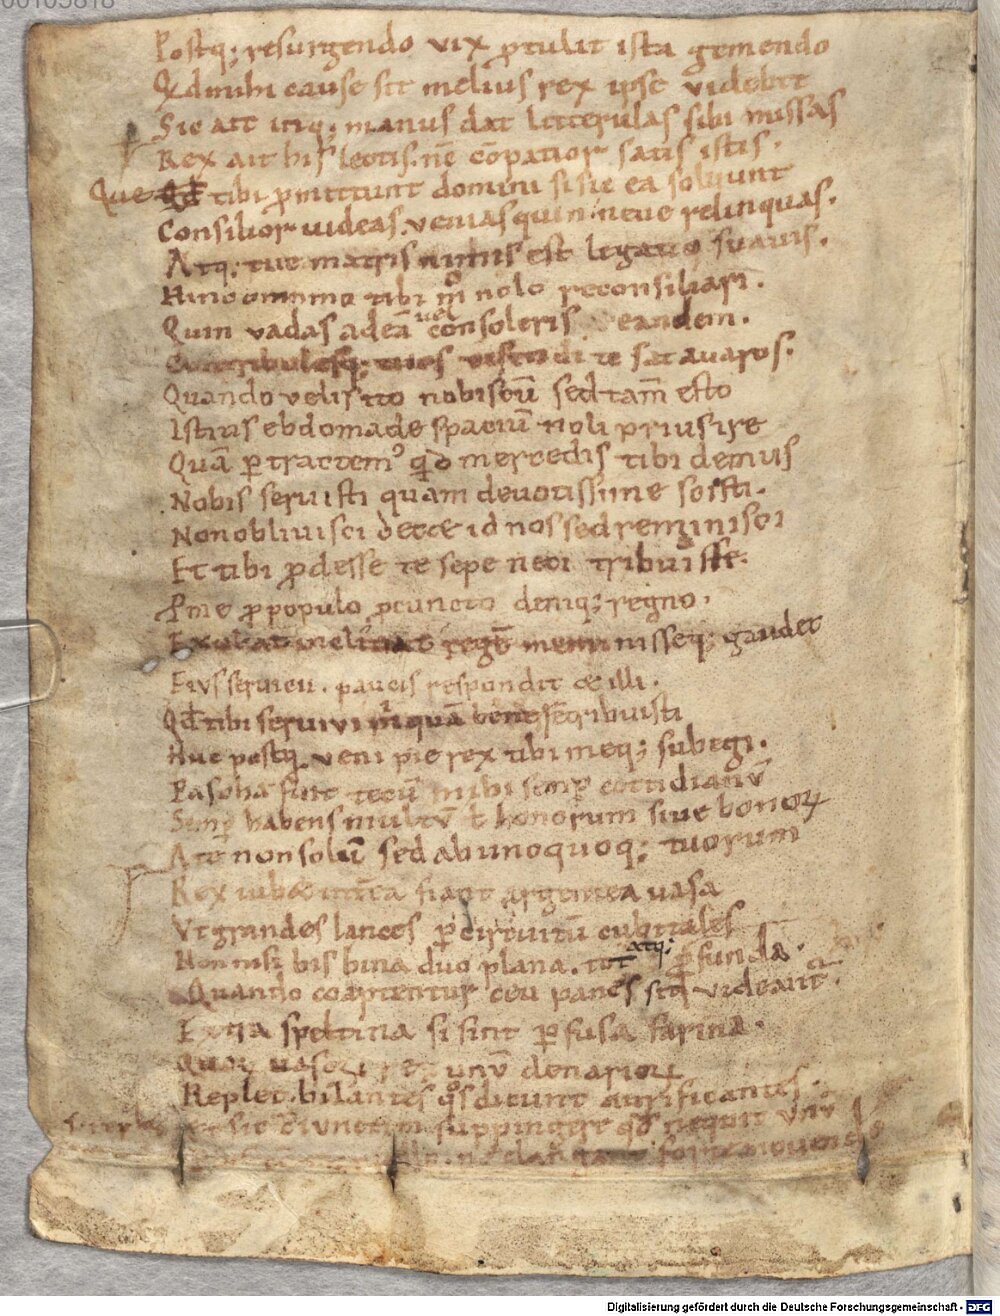 00103818
Postq; resurgendo vix ꝓtulit ista gemendo
Qd mihi cause sit melius rex ipse videbit
Sic ait itaq; manus dat litterulas sibi missas
Rex ait his lectis. nē cōpatior satis istis.
Que tibi ꝓmittunt domini si sic ea soluunt
Consilior uideas. venias quin. neue relinquas.
Atq; tue matris nimis est legatio suavis.
Hinc omnino tibi nolo reconsiliari.
Quin vadas ad eā uel consoleris eandem.
Contribulesq; tuos te sat avaros.
Quando velis ito nobiscū sed tam̄ esto
Istius ebdomade spaciū noli prius ire
Quā ꝑtractem⁹ qd mercedis tibi demus
Nobis servisti quam devotissime
Non oblivisci decet id nos sed reminisci
Et tibi ꝓdesse te sepe neci tribuisse.
P me ꝓ populo ꝓ cuncto deniq; regno.
meminisseq; gaudet
Eius servicii. paucis respondit & illi.
Qd tibi servivi quā bene retribuisti
Huc postq veni pie rex tibi meq; subegi.
Pascha fuit tecū mihi semp cottidianū
Semp habens multū honorum sive bonoꝝ
A te non solū sed ab unoquoq; tuorum
Rex iubet interea fiant argentea uasa
Vt grandes lances ꝑ circuitū cubitales
Non nisi bis bina duo plana. tot atq; ꝓfunda.
Quando coaptentur ceu panes sic videant᷑.
Extra speltina si sint ꝑfusa farina.
Quoꝝ uasoꝝ rex unū denarioꝝ
Replet. bilances qs dicunt aurificantes.
suppingere qd nequit
Digitalisierung gefördert durch die Deutsche Forschungsgemeinschaft - DFG